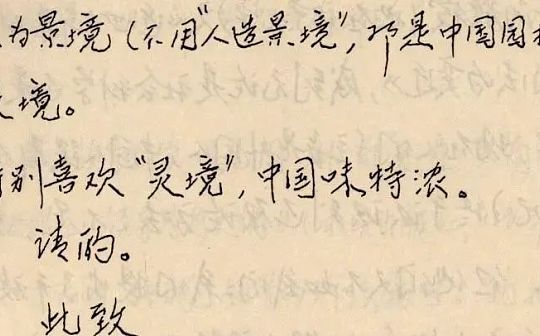 为景境（不用“人造景境”，那是中国园
境。
别喜欢“灵境”，中国味特浓。
请酌。
此致